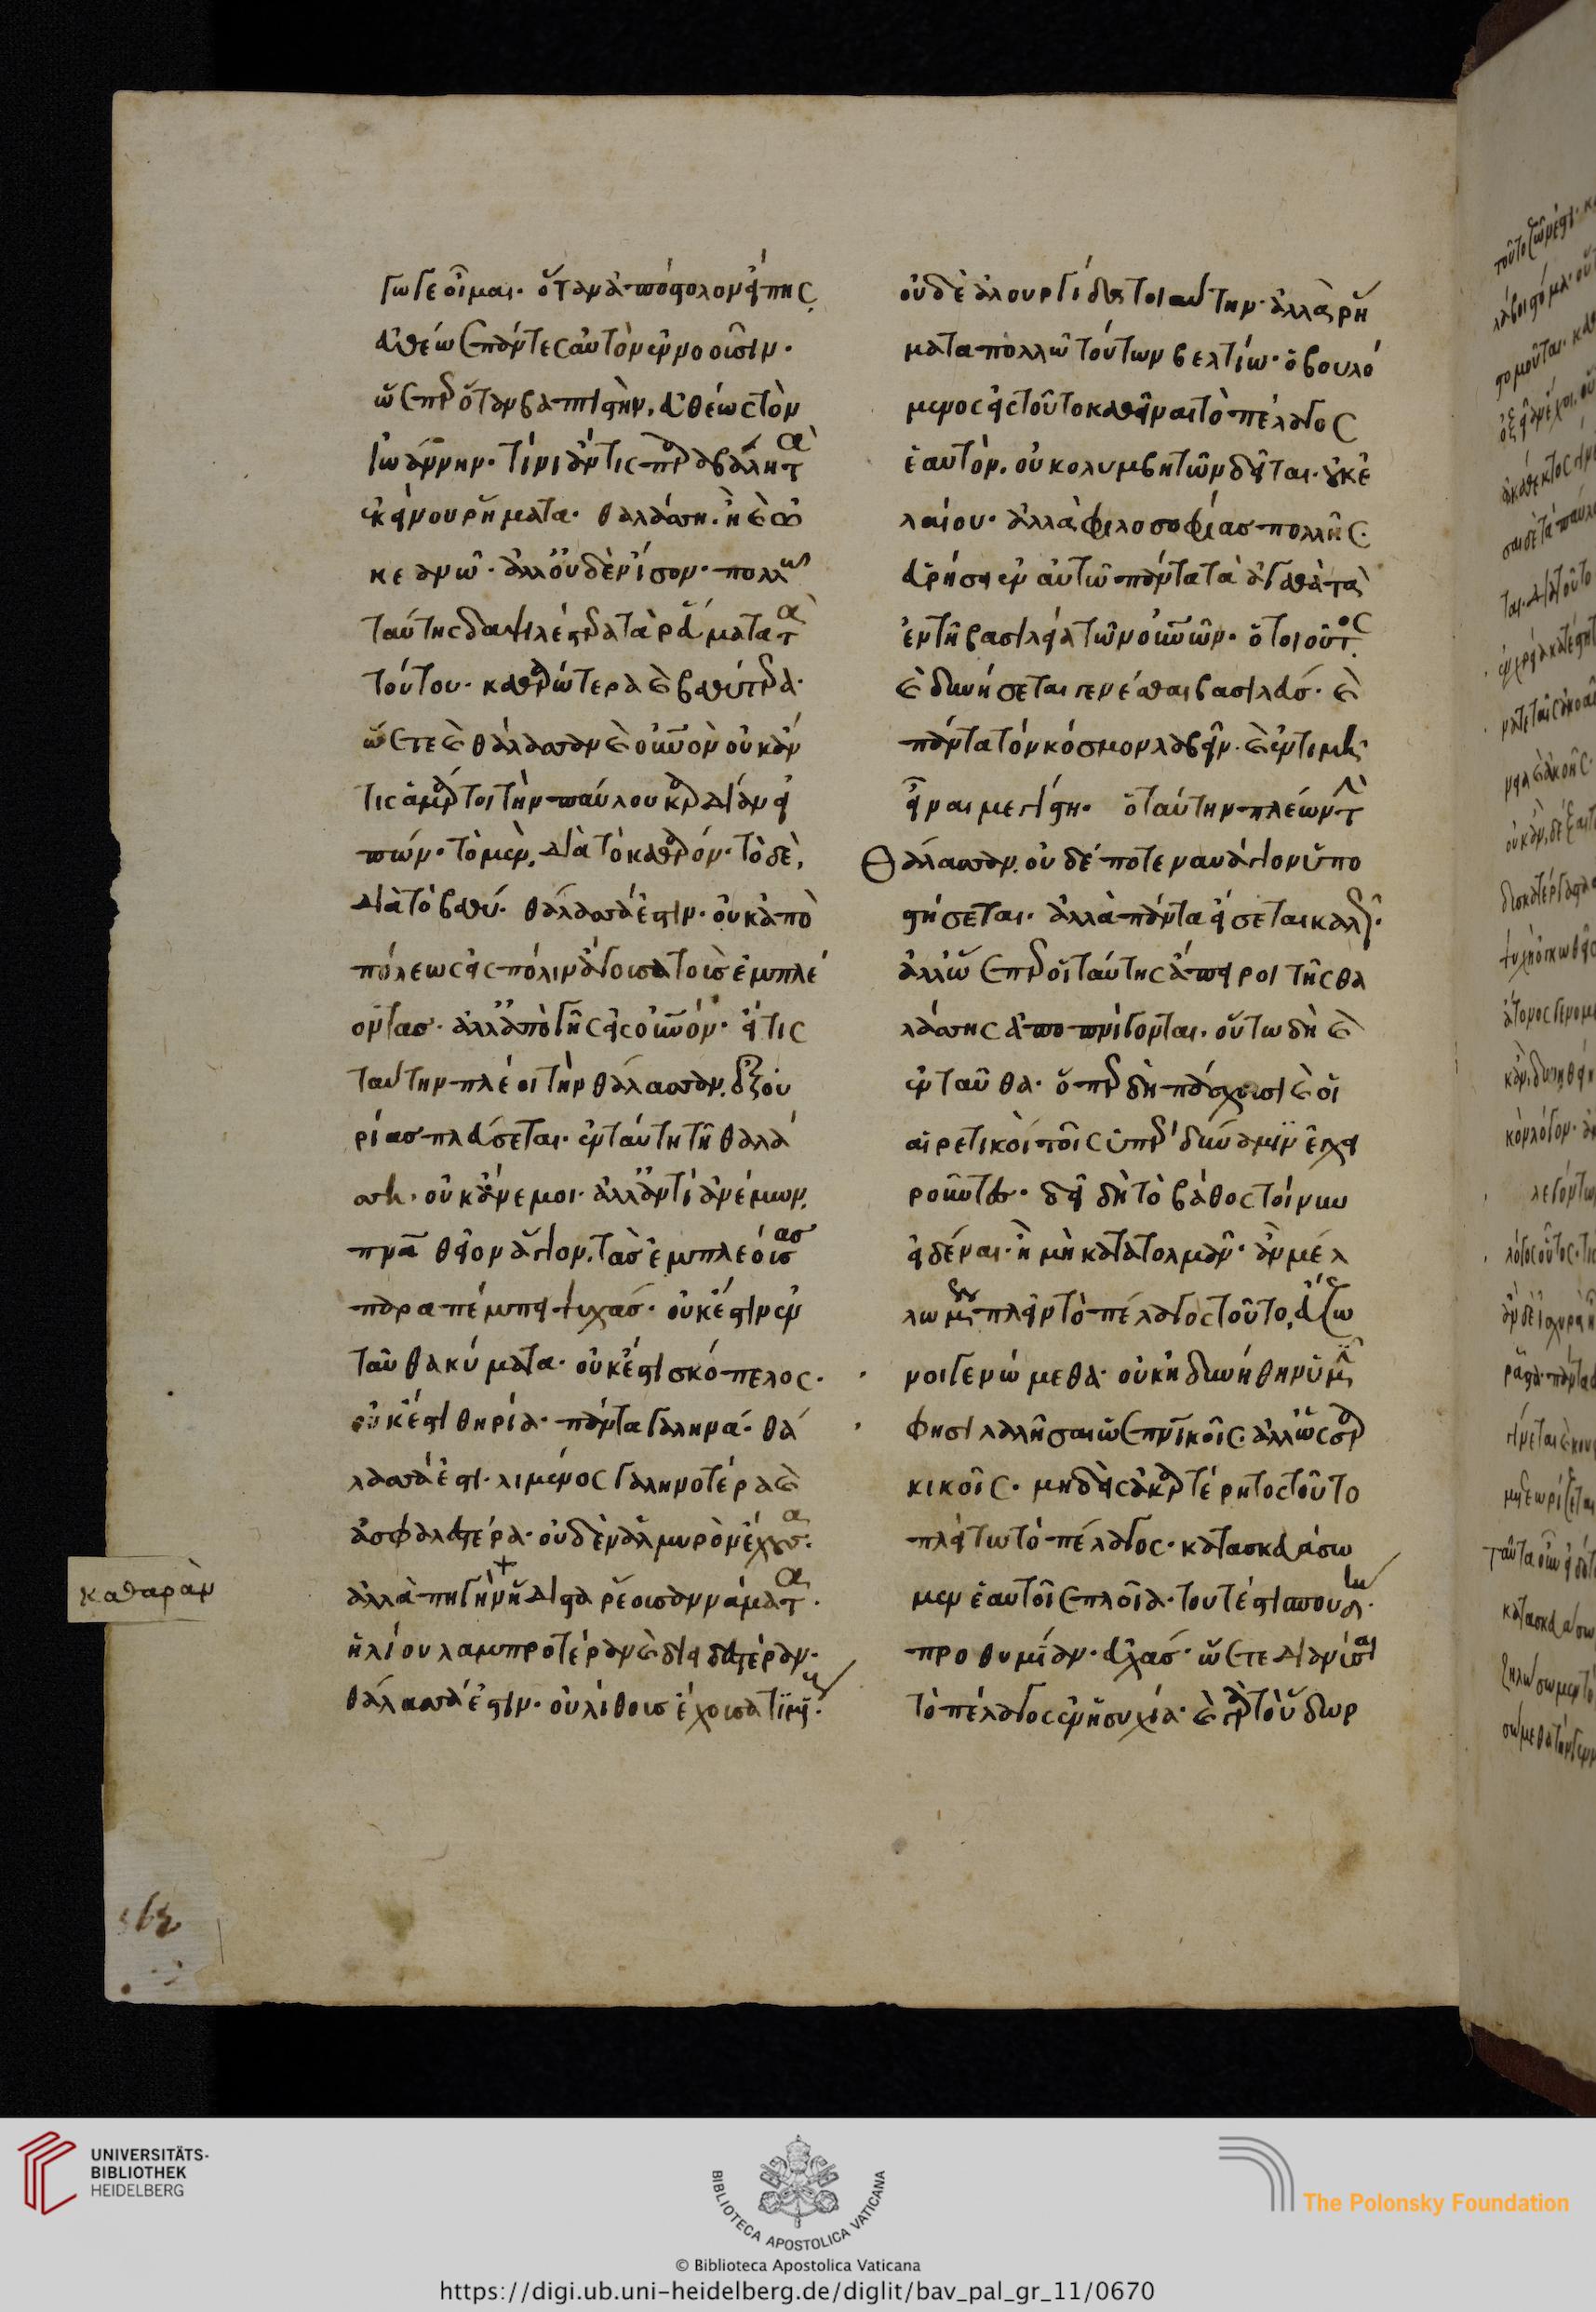 γωγε οἶμαι· ὅταν ἀπόστολον εἴπης
εὐθέως πάντες αὐτὸν ἐννοοῦσιν·
ὥσπερ ὅταν βαπτιστὴν, εὐθέως τὸν
ἰωάννην· τίνι ἄν τις παραβάλη τὰ
ἐκείνου ῥήματα· θαλάσση· ἢ καὶ ὠ
κεανῶ· ἀλλ' οὐδὲν ἴσον· πολλῶ
ταύτης δαψιλέστερα τὰ ῥεύματα τὰ
τούτου· καθαρώτερα καὶ βαθύτερα·
ὥστε καὶ θάλασσαν καὶ οὐνὸν οὐκ ἄν
τις ἁμάρτοι τὴν παύλου καρδίαν εἰ
πών· τὸ μὲν, διὰ τὸ καθαρόν· τὸ δὲ,
διὰ τὸ βαθύ· θάλασσά ἐστιν· οὐκ ἀπὸ
πόλεως εἰς πόλιν ἄγουσα τοὺς ἐμπλέ
οντας· ἀλλ' ἀπὸ γῆς εἰς οὐνόν· εἴ τις
ταύτην πλέοι τὴν θάλασσαν, ἐξ οὐ
ρίας πλεύσεται· ἐν ταύτη τῆ θαλά
σση· οὐκ ἄνεμοι· ἀλλ' ἀντὶ ἀνέμων,
πνα θεῖον ἅγιον, τὰς ἐμπλεούσας
παραπέμπει ψυχάς· οὐκ ἔστιν ἐν
ταῦθα κύματα· οὐκ ἔστι σκόπελος·
οὐκ ἔστι θηρία· πάντα γαληνά· θά
λασσά ἐστι· λιμένος γαληνοτέρα καὶ
ἀσφαλεστέρα· οὐδὲν ἁλμυρὸν ἔχουσα·
ἀλλὰ πηγὴν ἥδιστα ῥέουσαν νάματα·
καθαρὰν
ἡλίου λαμπροτέραν καὶ διειδεστέραν·
θάλασσά ἐστιν· οὐ λίθους ἔχουσα τιμίους·
οὐδὲ ἁλουργίδας τοιαύτην· ἀλλὰ ῥή
ματα πολλῶ τούτων βελτίω· ὁ βουλό
μενος εἰς τοῦτο καθεῖναι τὸ πέλαγος
ἑαυτόν, οὐ κολυμβητῶν δεῖται· οὐκ ἐ
λαίου· ἀλλὰ φιλοσοφίας πολλῆς·
εὑρήσει ἐν αὐτῶ πάντα τὰ ἀγαθὰ τὰ
ἐν τῆ βασιλεία τῶν οὐνῶν· ὁ τοιοῦτος
καὶ δυνήσεται γενέσθαι βασιλεύς· καὶ
πάντα τὸν κόσμον λαβεῖν· καὶ ἐν τιμῆ
εἶναι μεγίστη· ὁ ταύτην πλέων τὴν
θάλασσαν, οὐδέποτε ναυάγιον ὑπο
στήσεται· ἀλλὰ πάντα εἴσεται καλῶς·
ἀλλ' ὥσπερ οἱ ταύτης ἄπειροι τῆς θα
λάσσης ἀποπνίγονται· οὕτω δὴ καὶ
ἐνταῦθα· ὅπερ δὴ πάσχουσι καὶ οἱ
αἱρετικοὶ τοῖς ὑπὲρ δύναμιν ἐπιχει
ροῦντες· δεῖ δὴ τὸ βάθος τοίνυν
εἰδέναι· ἢ μὴ κατατολμᾶν· ἂν μέλ
λωμεν πλεῖν τὸ πέλαγος τοῦτο, εὔζω
νοι γενώμεθα· οὐκ ἠδυνήθην ὑμῖν
φησὶ λαλῆσαι ὡς πνικοῖς· ἀλλ' ὡς σαρ
κικοῖς· μηδεὶς ἀκαρτέρητος τοῦτο
πλείτω τὸ πέλαγος· κατασκευάσω
μεν ἑαυτοῖς πλοῖα· τουτέστι σπουδὴν·
προθυμίαν· εὐχάς· ὥστε διανύσαι
τὸ πέλαγος ἐν ἡσυχία· καὶ γὰρ τὸ ὕδωρ
UNIVERSITÄTS-
BIBLIOTHEK
HEIDELBERG
BIBLIOTECA APOSTOLICA VATICANA
© Biblioteca Apostolica Vaticana
The Polonsky Foundation
https://digi.ub.uni-heidelberg.de/diglit/bav_pal_gr_11/0670